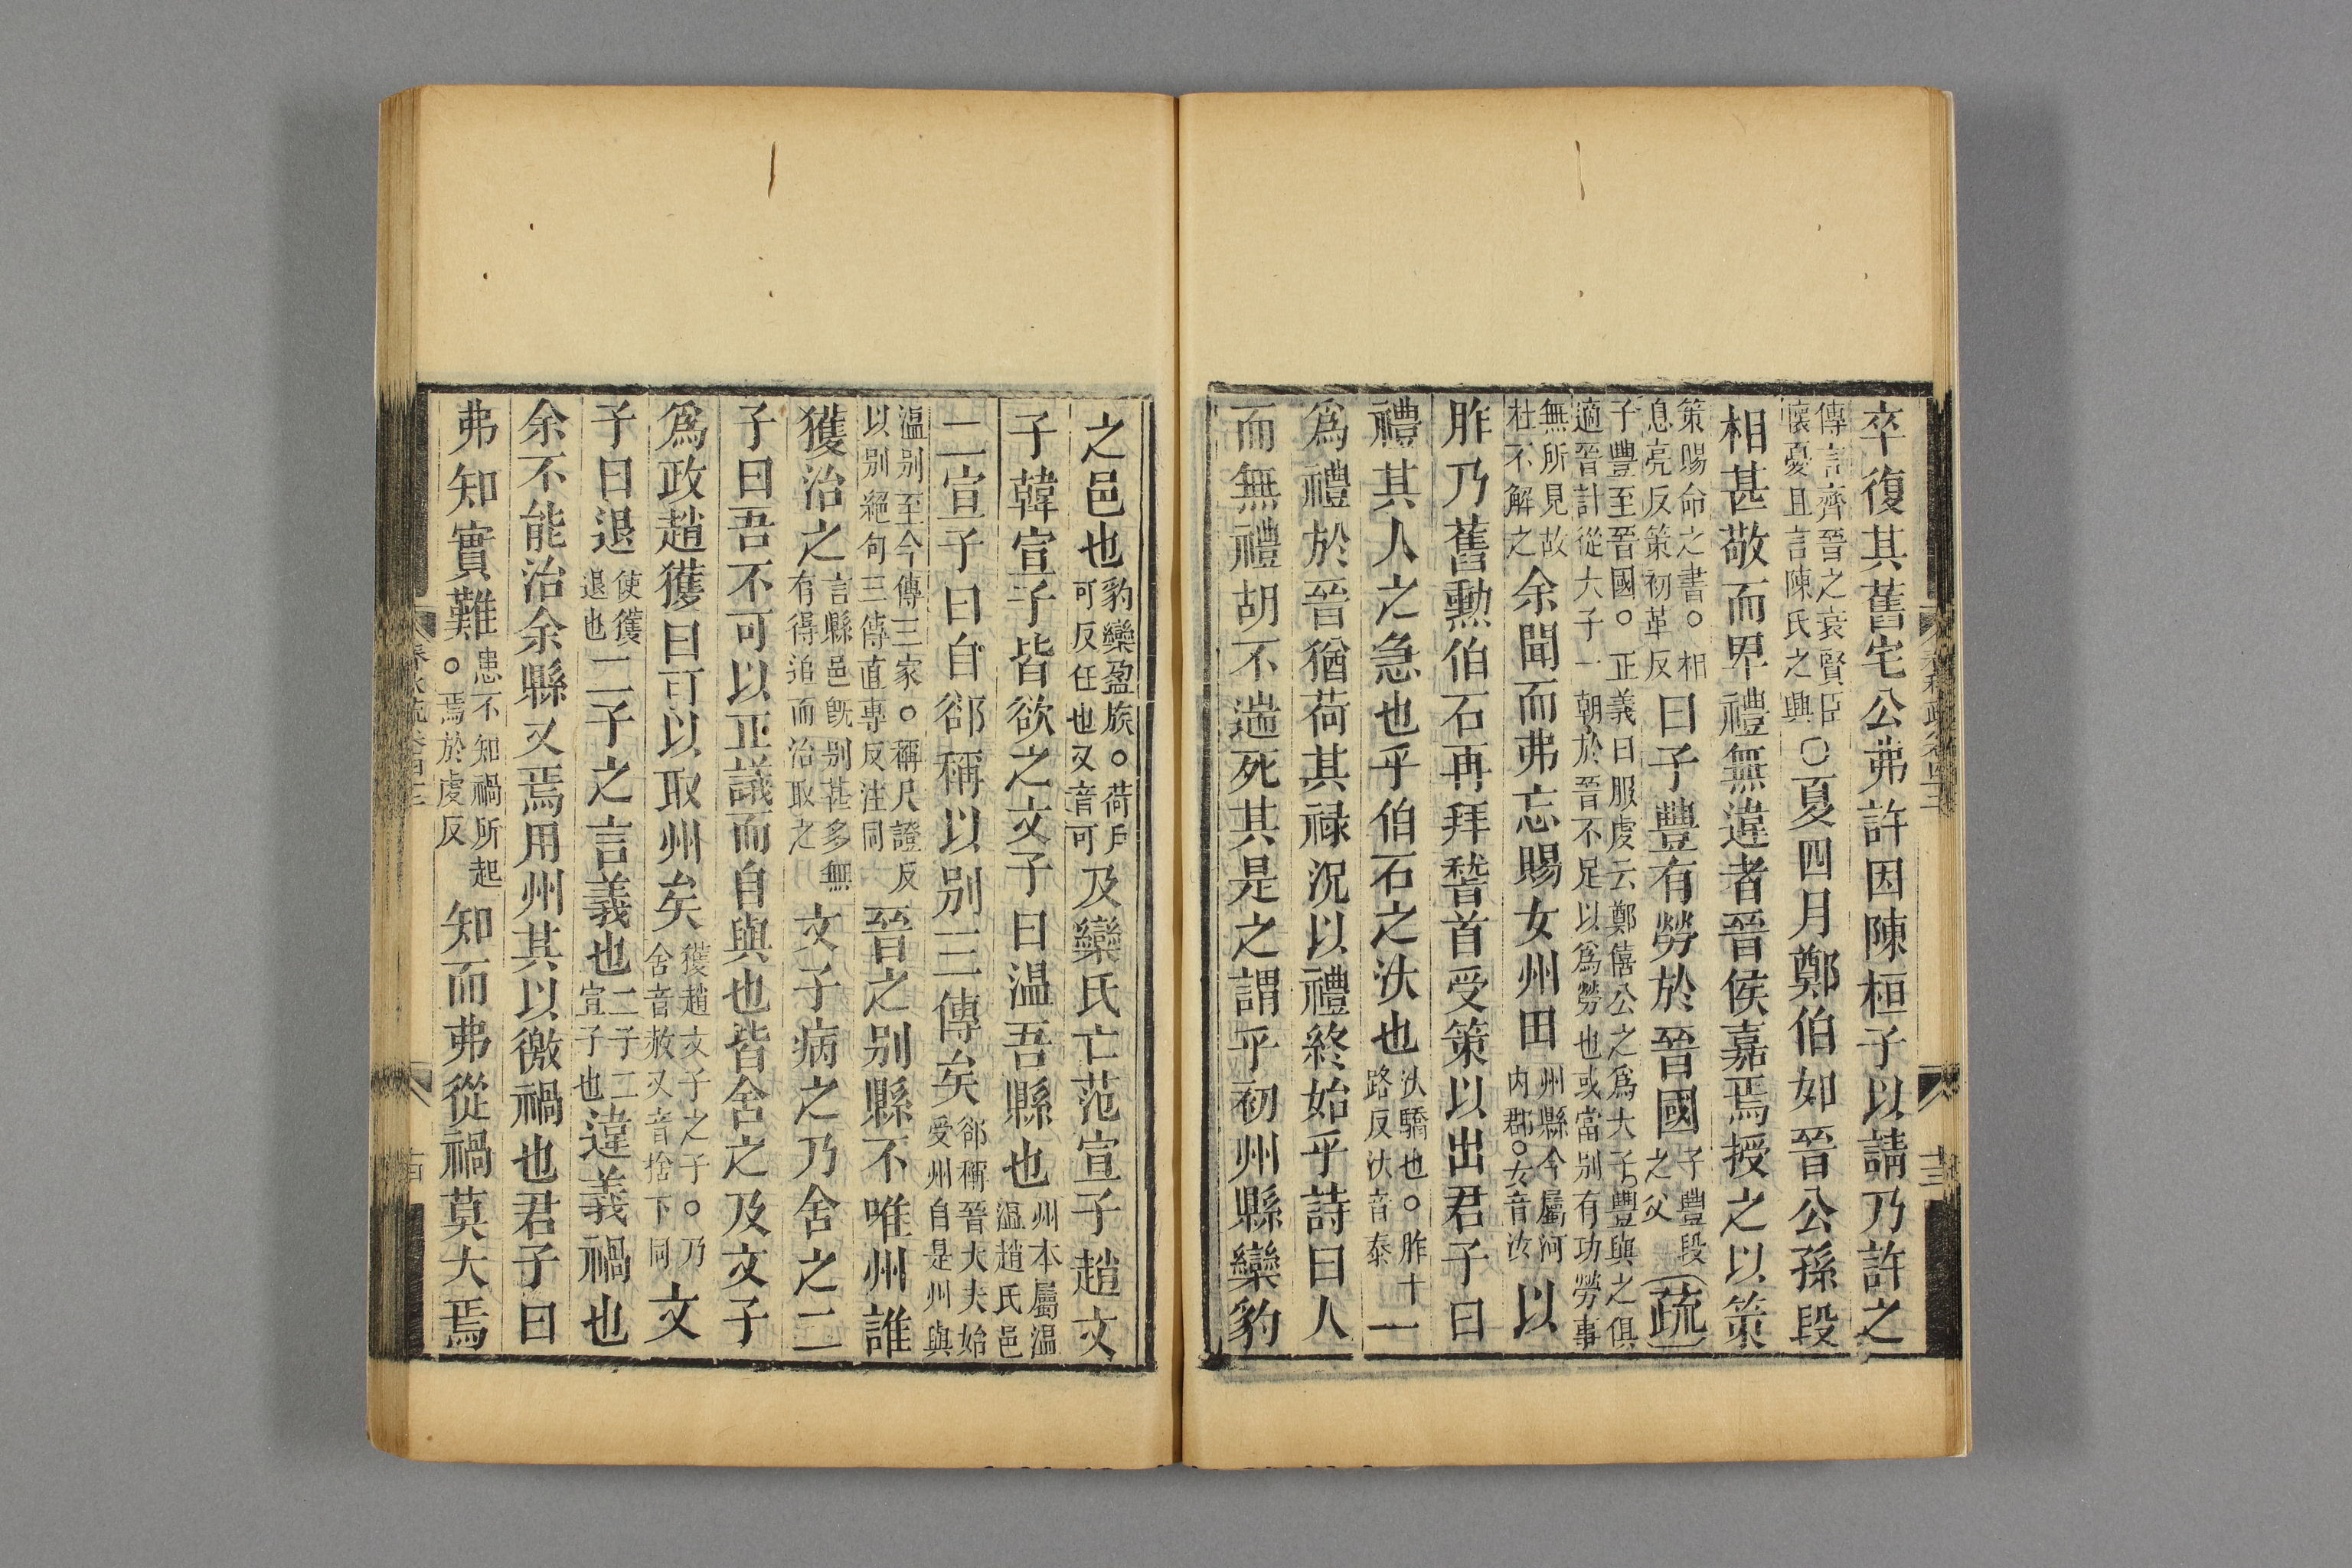 卒復其舊宅公弗許因陳桓子以請乃許之
傳言齊晉之衰賢臣懷憂且言陳氏之興〇夏四月鄭伯如晉公孫段
相甚敬而卑禮無違者晉侯嘉焉授之以策
策賜命之書。相息亮反策初革反曰子豐有勞於晉國子豐段之父疏
子豐至晉國。正義曰服虔云鄭僖公之爲大子豐與之俱適晉計從大子一朝於晉不足以爲勞也或當别有功勞事
無所見故杜不解之余聞而弗忘賜女州田州縣今屬河内郡。女音汝以
胙乃舊勳伯石再拜稽首受策以出君子曰
禮其人之急也乎伯石之汏也汏驕也。胙十路反汏音泰一
爲禮於晉猶荷其禄況以禮終始乎詩曰人
而無禮胡不遄死其是之謂乎初州縣欒豹
之邑也豹欒盈族。荷戶可反任也又音可及欒氏亡范宣子趙文
子韓宣子皆欲之文子曰温吾縣也州本屬温温趙氏邑
二宣子曰自郤稱以别三傳矣郤稱晉大夫始受州自是州與
温别至今傳三家。稱尺證反以别絶句三傳直專反注同晉之别縣不唯州誰
獲治之言縣邑旣别甚多無有得追而治取之文子病之乃舍之二
子曰吾不可以正議而自與也皆舍之及文子
爲政趙獲曰可以取州矣獲趙文子之子。乃舍音赦又音捨下同文
子曰退使獲退也二子之言義也二子二宣子也違義禍也
余不能治余縣又焉用州其以徼禍也君子曰
弗知實難患不知禍所起。焉於虔反知而弗從禍莫大焉